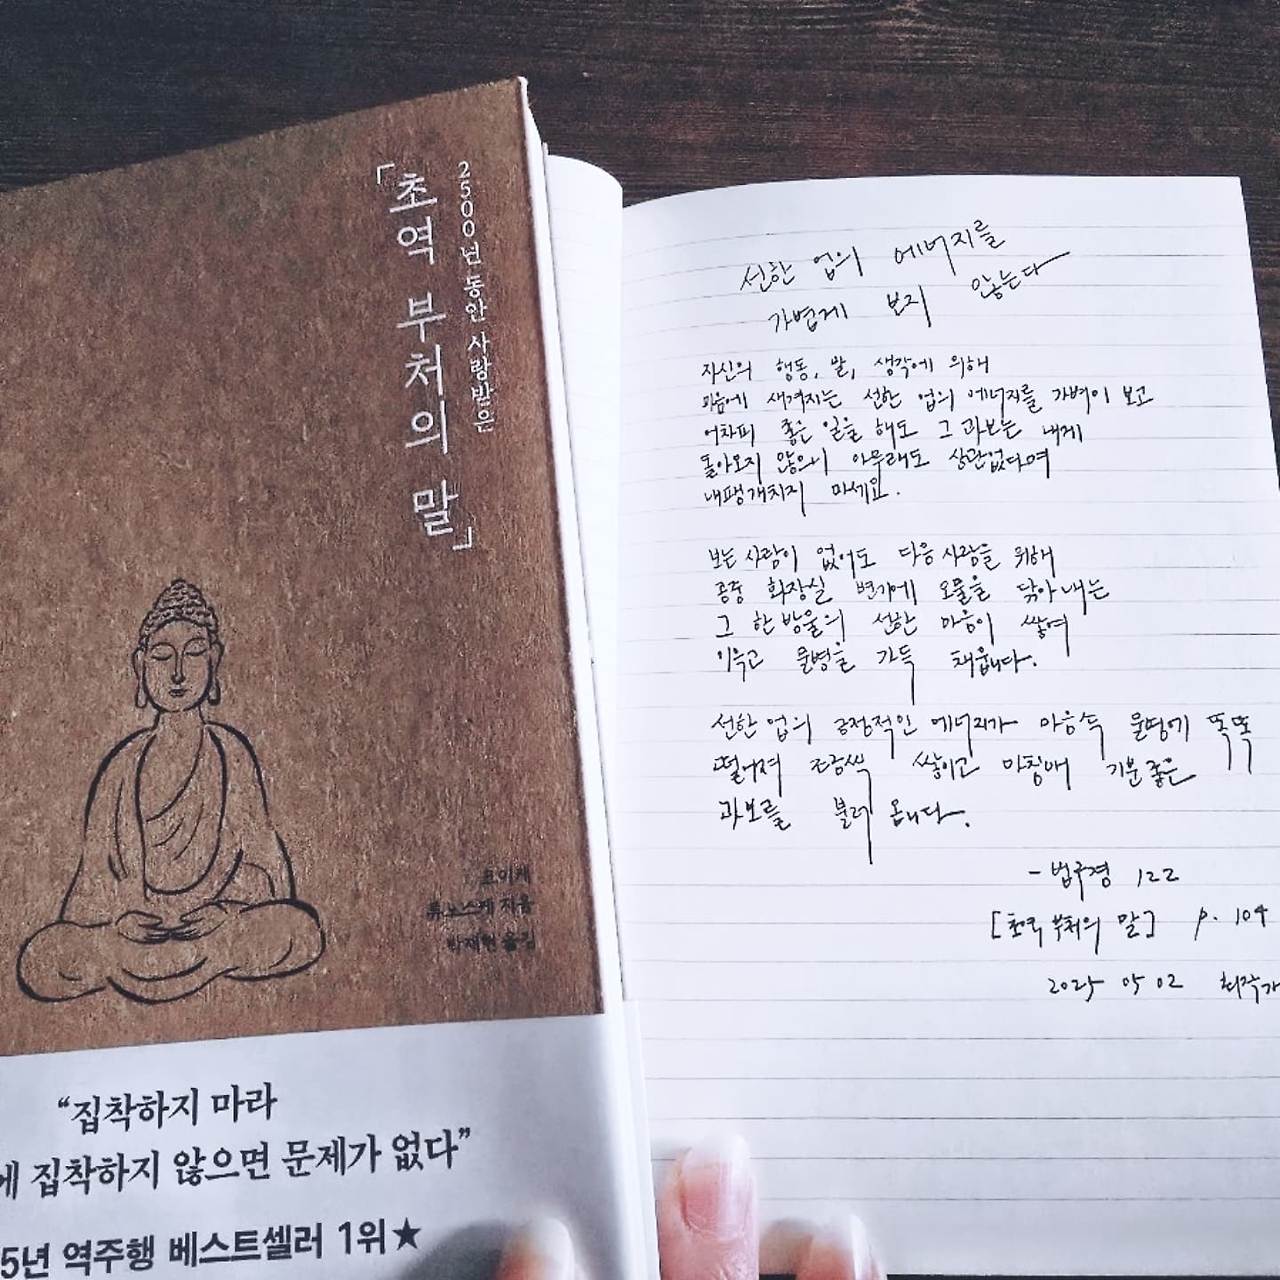 2500년 동안 사랑받은
「초역 부처의 말」
코이케
류노스케 지음
박재현 옮김
“집착하지 마라
에 집착하지 않으면 문제가 없다”
5년 역주행 베스트셀러 1위★
선한 업의 에너지를
가볍게 보지 않는다
자신의 행동, 말, 생각에 의해
마음에 새겨지는 선한 업의 에너지를 가벼이 보고
어차피 좋은 일을 해도 그 과보는 내게
돌아오지 않으니 아무래도 상관없다며
내팽개치지 마세요.
보는 사람이 없어도 다음 사람을 위해
공중 화장실 변기에 오물을 닦아 내는
그 한 방울의 선한 마음이 쌓여
이윽고 물병을 가득 채웁니다.
선한 업의 긍정적인 에너지가 마음속 물병에 똑똑
떨어져 조금씩 쌓이고 마침내 기분 좋은
과보를 불러 옵니다.
- 법구경 122
[초역 부처의 말] p. 104
2025 05 02 최작가